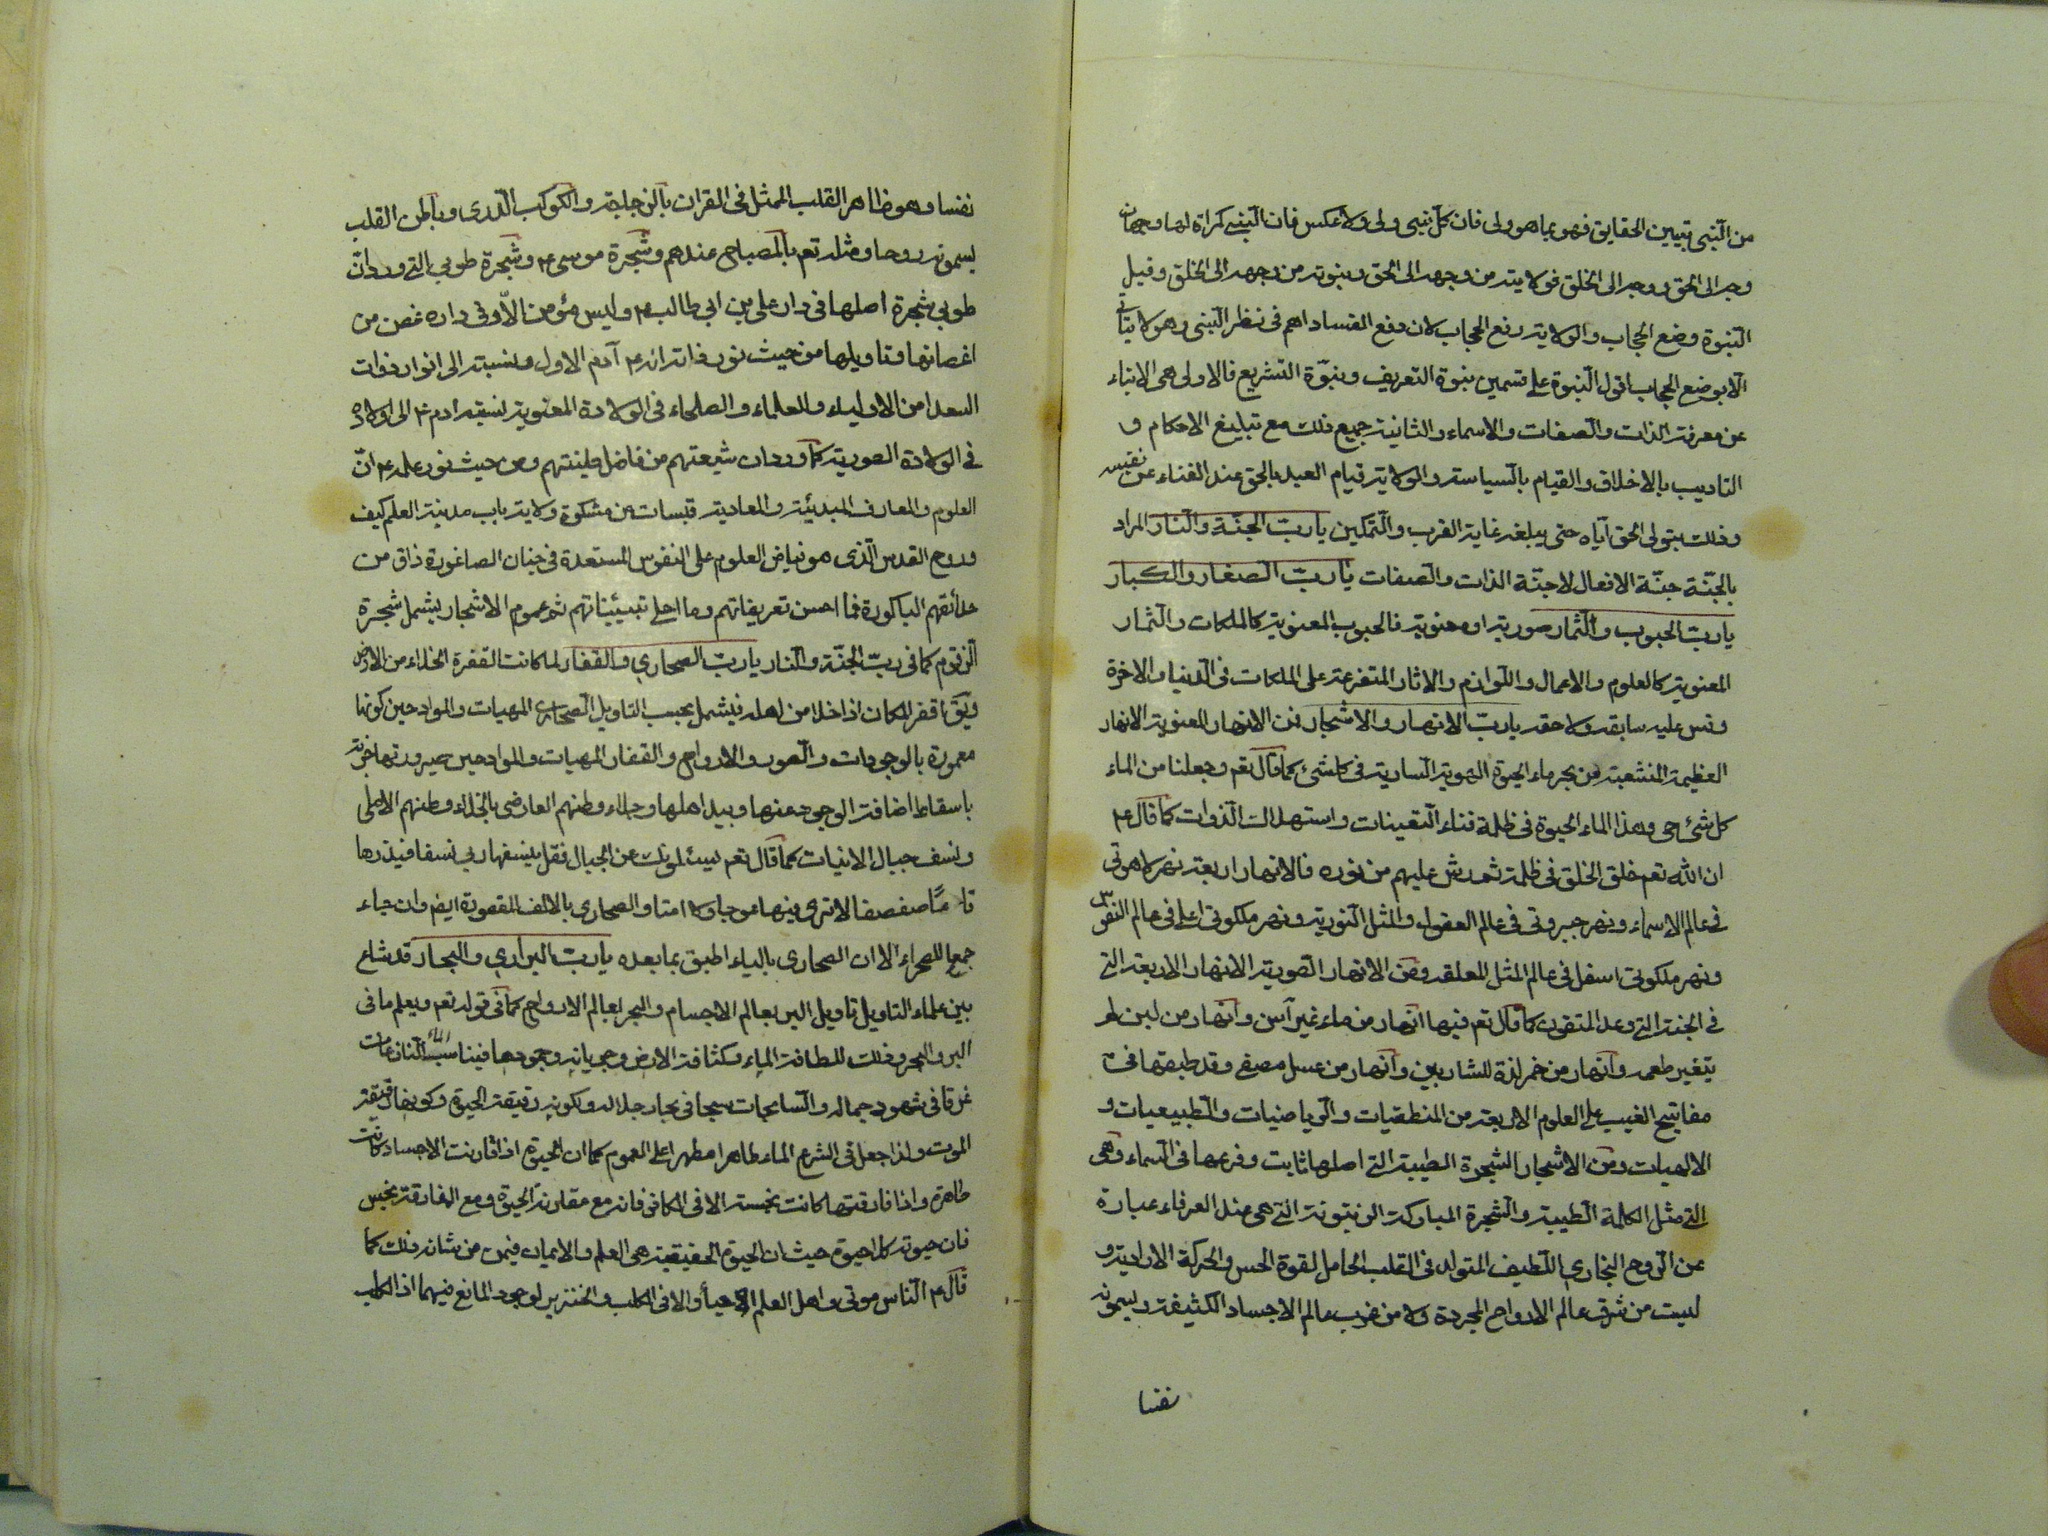 من النبى بتبيين الحقايق فهو بما هو ولى فان كل نبى ولى ولا عكس فان النبى كمراة لها وجهان
وجه الى الحق ووجه الى الخلق فولايته من وجهه الى الحق ونبوته من وجهه الى الخلق وقيل
النبوة وضع الحجاب والولاية رفع الحجاب لان دفع الفساد اهم فى نظر النبى وهو لا يتاتى
الا بوضع الحجاب اقول النبوة على قسمين نبوة التعريف ونبوة التشريع فالاولى هى الانباء
عن معرفة الذات والصفات والاسماء والثانية جميع ذلك مع تبليغ الاحكام و
التاديب بالاخلاق والقيام بالسياسة والولاية قيام العبد بالحق عند الفناء عن نفسه
وذلك بتولى الحق اياه حتى يبلغه غاية القرب والتمكين يا رب الجنة والنار المراد
بالجنة جنة الافعال لا جنة الذات والصفات يا رب الصغار والكبار
يا رب الحبوب والثمار صورية او معنوية فالحبوب المعنوية كالملكات والثمار
المعنوية كالعلوم والاعمال واللوازم والاثار المتفرعة على الملكات فى الدنيا والاخرة
وقس عليه سابقه ولاحقه يا رب الانهار والاشجار فمن الانهار المعنوية الانهار
العظيمة المنشعبة من بحر ماء الحيوة الهوية السارية فى كل شئ كما قال تعم وجعلنا من الماء
كل شئ حى وهذا الماء الحيوة فى ظلمة فناء التعينات واستهلاك الذوات كما قال ع
ان الله تعم خلق الخلق فى ظلمة ثم رش عليهم من نوره فالانهار اربعة نهر لاهوتى
فى عالم الاسماء ونهر جبروتى فى عالم العقول والمثل النورية ونهر ملكوتى اعلى فى عالم النفوس
ونهر ملكوتى اسفل فى عالم المثل المعلقة ومن الانهار الصورية الانهار الاربعة التى
فى الجنة التى وعد المتقون كما قال تعم فيها انهار من ماء غير آسن وانهار من لبن لم
يتغير طعمه وانهار من خمر لذة للشاربين وانهار من عسل مصفى وقد طبقتها فى
مفاتيح الغيب على العلوم الاربعة من المنطقيات والرياضيات والطبيعيات و
الالهيات ومن الاشجار الشجرة الطيبة التى اصلها ثابت وفرعها فى السماء وهى
التى مثل الكلمة الطيبة والشجرة المباركة الزيتونة التى هى عند العرفاء عبارة
عن الروح البخارى اللطيف المتولد فى القلب الحامل لقوة الحس والحركة الارادية و
ليست من شرق عالم الارواح المجردة ولا من غرب عالم الاجساد الكثيفة ويسمونه
نفسا
نفسا وهو ظاهر القلب الممثل فى القران بالزجاجة والكوكب الدرى وباطن القلب
يسمونه روحا ومثله تعم بالمصباح عندهم وشجرة موسى ع وشجرة طوبى التى ورد ان
طوبى شجرة اصلها فى دار على بن ابى طالب ع وليس مؤمن الا وفى داره غصن من
اغصانها وتاويلها من حيث نور ذاته انه ع آدم الاول ونسبته الى انوار ذوات
السعدا من الاولياء والعلماء والصلحاء فى الولادة المعنوية نسبة ادم ع الى اولاده
فى الولادة الصورية كما ورد ان شيعتهم من فاضل طينتهم ومن حيث نور علمه ع ان
العلوم والمعارف المبدئية والمعادية قبسات من مشكوة ولاية باب مدينة العلم كيف
وروح القدس الذى هو فياض العلوم على النفوس المستعدة فى جنان الصاغورة ذاق من
حدائقهم الباكورة فما احسن تعريفاتهم وما احلى تبييناتهم ثم عموم الاشجار يشمل شجرة
الزقوم كما فى رب الجنة والنار يا رب الصحارى والقفار لما كانت القفرة الخلاء من الارض
ويق اقفر المكان اذا خلا من اهله فيشمل بحسب التاويل الصحارى المهيات والمواد حين كونها
معمورة بالوجودات والصور والارواح والقفار المهيات والمواد حين صيرورتها خربة
باسقاط اضافة الوجود عنها وبيد اهلها وجلاء وطنهم العارضى بالخلاء وطنهم الاصلى
ونسف جبال الانيات كما قال تعم يسئلونك عن الجبال فقل ينسفها ربى نسفا فيذرها
قاعا صفصفا لا ترى فيها عوجا ولا امتا والصحارى بالالف المقصورة ايضا وان جاء
جمعا للصحراء الا ان الصحارى بالياء اطبق بما بعده يا رب البرارى والبحار قد شاع
بين علماء التاويل تاويل البر بعالم الاجسام والبحر بعالم الارواح كما فى قوله تعم ويعلم ما فى
البر والبحر وذلك للطافة الماء وكثافة الارض وجريانه وجمودها فيناسب النازعات
غرقا فى شهود جماله والسابحات سبحا فى بحار جلاله ولكونه رقيقة الحيوة وكونها رقيقة
الموت ولذا جعل فى الشرع الماء طاهرا مطهرا على العموم كما ان الحيوة اذا قارنت الاجساد كانت
طاهرة واذا فارقتها كانت نجسة الا فى الكافر فانه مع مقارنة الحيوة ومع المفارقة نجس
فان حيوته كلا حيوة حيث ان الحيوة الحقيقية هى العلم والايمان فيمن من شانه ذلك كما
قال ع الناس موتى واهل العلم احياء والا فى الكلب والخنزير لوجود المانع فيهما اذ الكلب